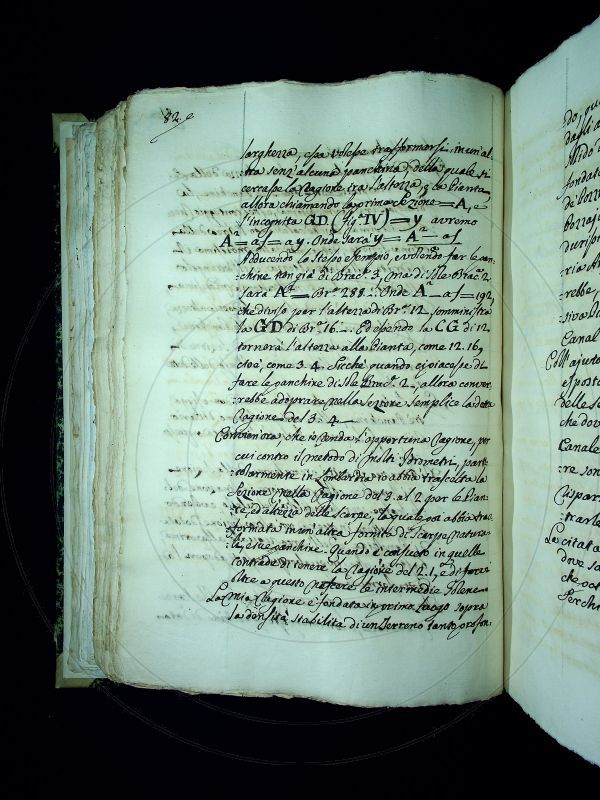 82.
larghezza, essa volesse trasformarsi in un'al-
tra senz'alcuna panchina, della quale si
cercasse la Ragione tra l'altezza, e la Pianta
allora chiamando la prima sezione = A, e
l'incognita GD (fig.ª IV) = y avremo
A² = af = ay. Onde sarà y = A² = af
Adducendo lo stesso esempio, e volendo far le pan-
chine non già di Brac. 3, ma di sole Brac. 2
sarà A² = Br. 288. Onde A² = af = 192,
che diviso per l'altezza di Br. 12 somministra
la GD di Br. 16. Ed essendo la CG di 12
tornerà l'altezza alla Pianta, come 12. 16,
cioè, come 3. 4. Sicchè quando ci piacesse di
fare le panchine di sole Brac. 2, allora conver-
rebbe adoprare nella sezione semplice la detta
Ragione del 3. 4
Convien ora, che io renda l'opportuna Ragione, per
cui contro il metodo di molti Idrometri, parti-
colarmente in Lombardia io abbia trascelta la
sezione nella Ragione del 3 al 2 per le Pian-
te, ed altezza delle scarpe, la quale poi abbia tras-
formata in un'altra fornita di scarpe natura-
li, e sue panchine. Quando è consueto in quelle
contrade di tenere la Ragione del 2. 1, e di
oltre a questo le intermedie
La mia Ragione è fondata in primo luogo sopra
la densità stabilita di un Terreno tanto
larg
Canal
Canale
La citata
Perchè